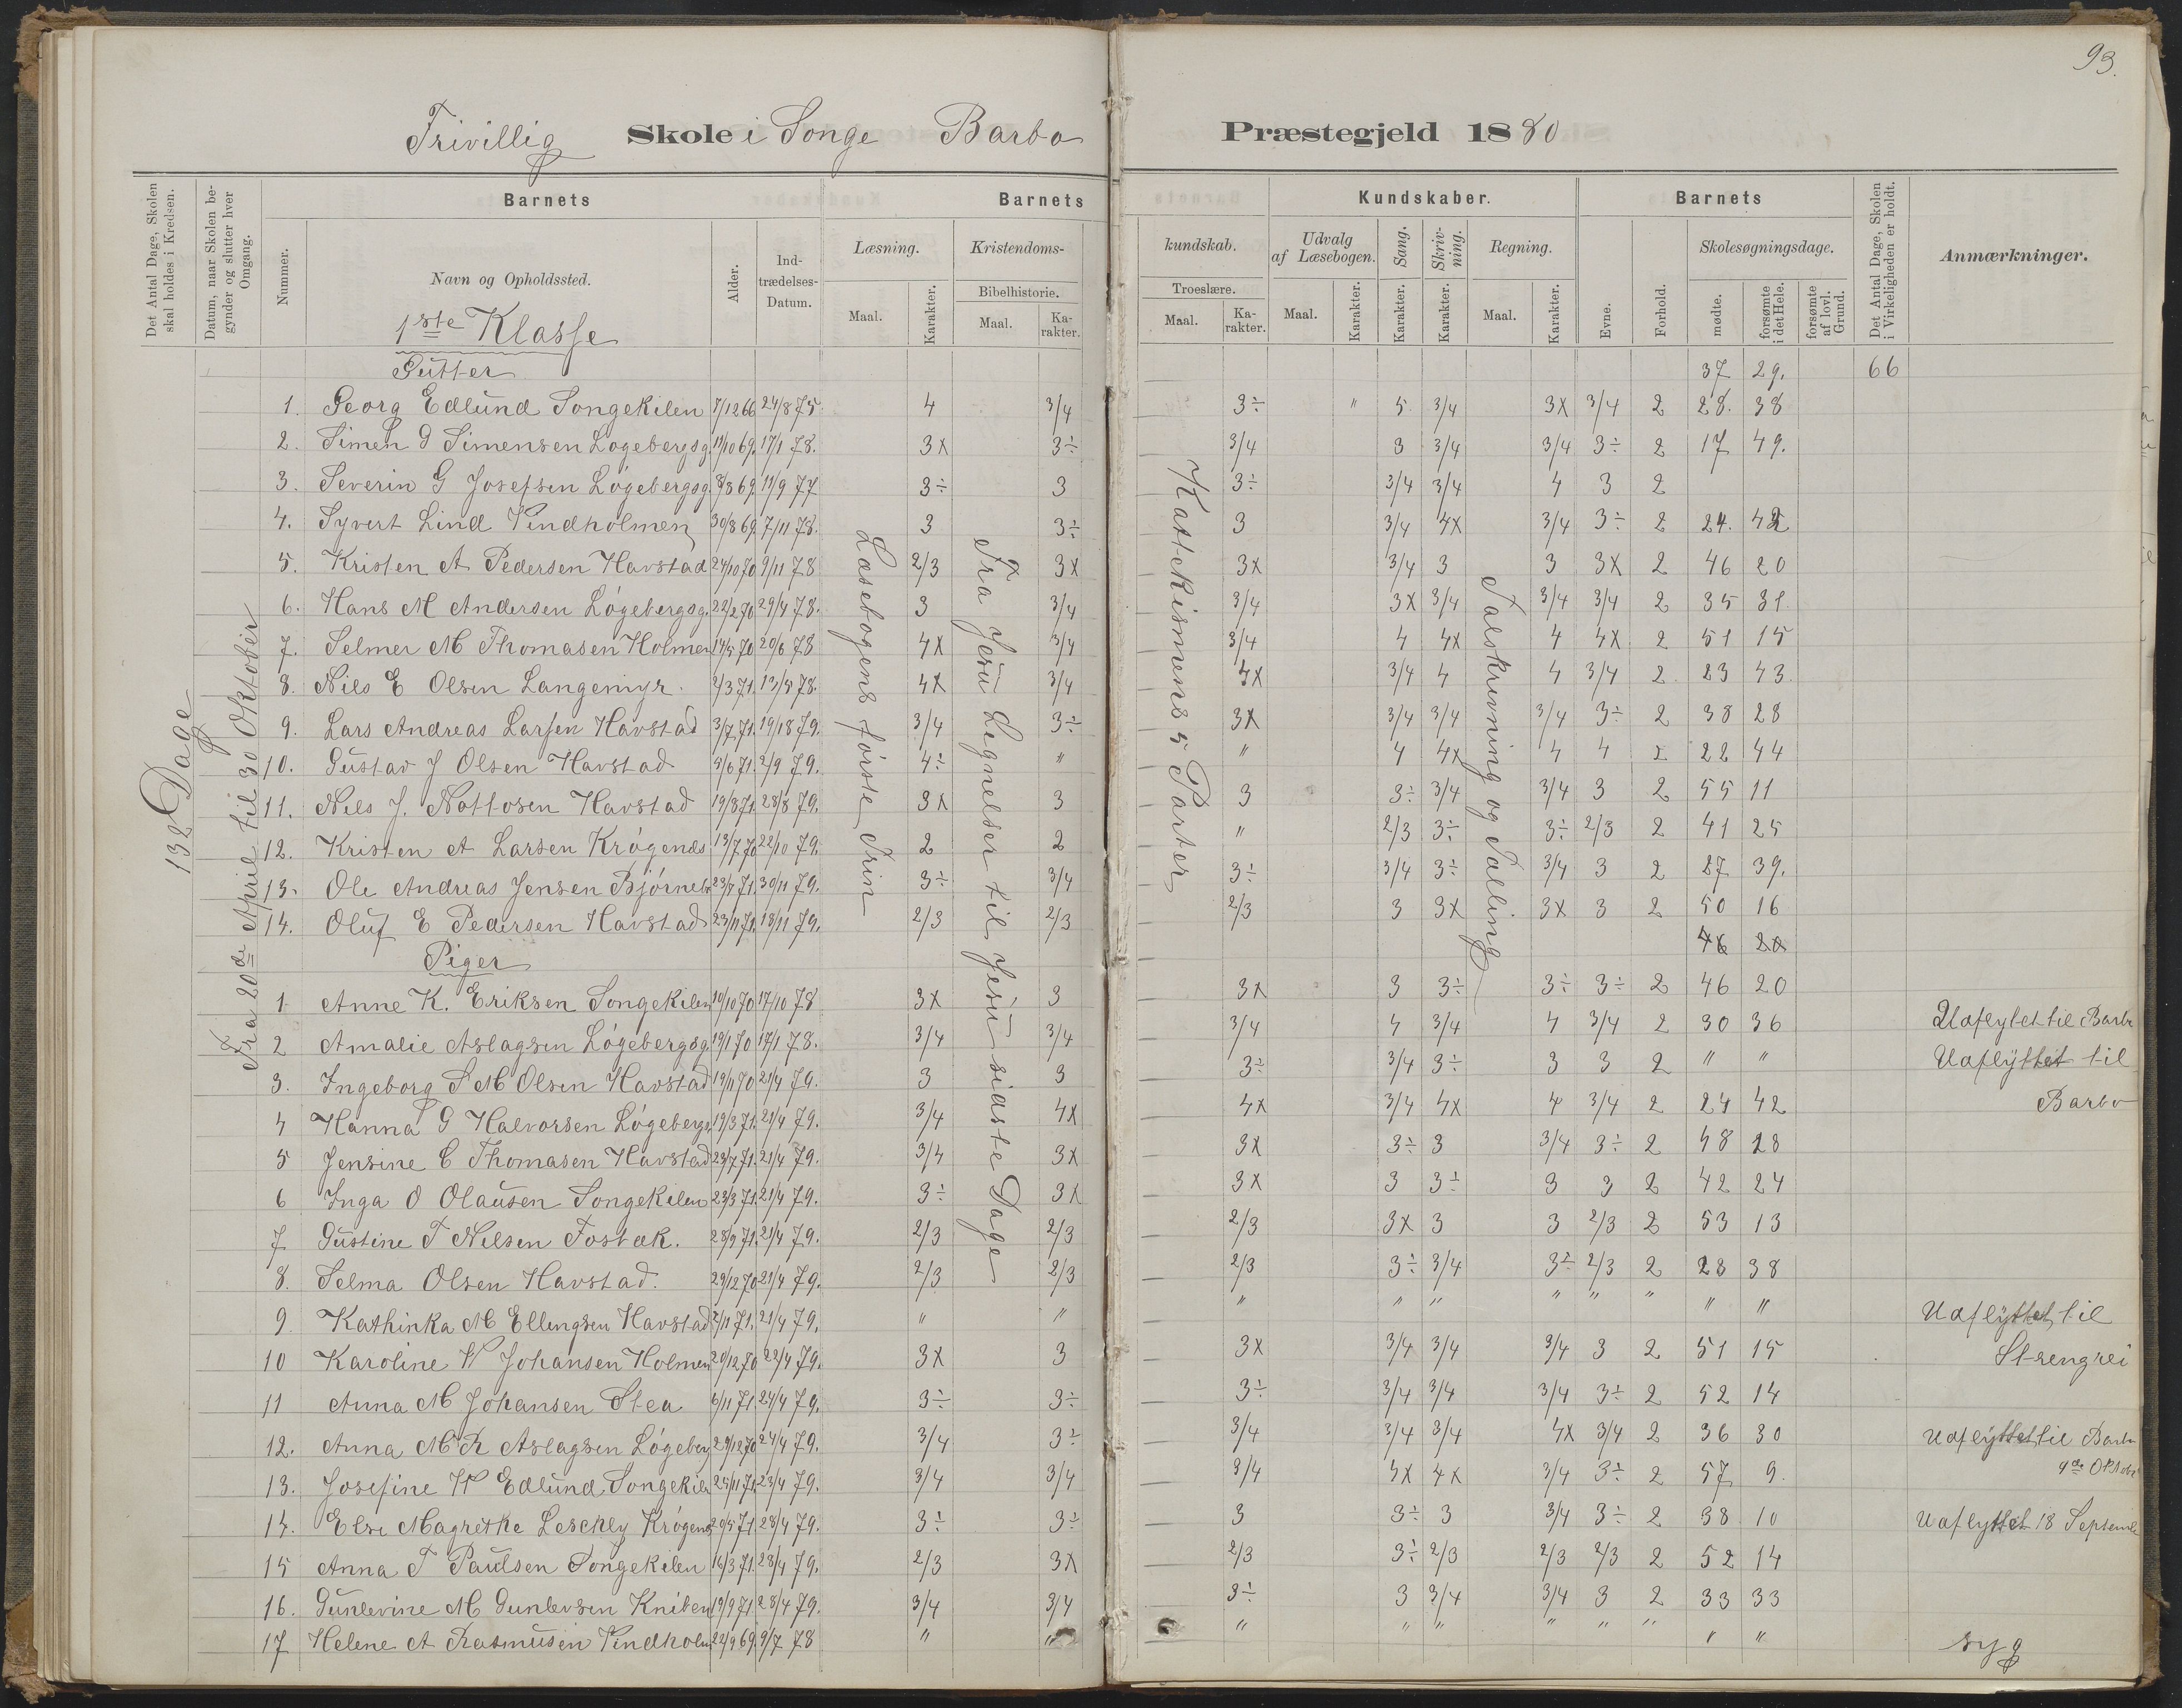 93.
Frivillig Skole i Songe Barbo Præstegjeld 1880
Det Antal Dage, Skolen skal holdes i Kredsen.
Datum, naar Skolen begynder og slutter hver Omgang.
Barnets
Nummer.
Navn og Opholdssted.
Alder.
Indtrædelses-Datum.
Barnets
Læsning.
Maal.
Karakter.
Kristendoms-
Bibelhistorie.
Maal.
Karakter.
kundskab.
Troeslære.
Maal.
Karakter.
Kundskaber.
Udvalg af Læsebogen.
Maal.
Karakter.
Sang.
Karakter.
Skrivning.
Karakter.
Regning.
Maal.
Karakter.
Barnets
Evne.
Forhold.
Skolesøgningsdage.
mødte.
forsømte i det Hele.
forsømte af lovl. Grund.
Det Antal Dage, Skolen i Virkeligheden er holdt.
Anmærkninger.
132 Dage
Fra 20de April til 30 Oktober
Læsebogens første Trin
Fra Jesu Lignelser til Jesu sidste Dage
Katekismens 5 Parter
Talskrivning og Tælling
1ste Klasse
Gutter 37 29. 66
1. Georg Edlund Songekilen 7/12 66 24/8 75. 4 3/4 3÷ " 5 3/4 3x 3/4 2 28. 38
2. Simen G Simensen Løgebergsg. 11/10 69. 17/1 78. 3x 3÷ 3/4 3 3/4 3/4 3÷ 2 17 49.
3. Severin G Josefsen Løgebergsg. 8/8 69. 11/9 77 3÷ 3 3÷ 3/4 3/4 4 3 2
4. Syvert Lind Vindholmen 30/8 69. 7/11 78. 3 3÷ 3 3/4 4x 3/4 3÷ 2 24. 42
5. Kristen A Pedersen Havstad 24/10 70 9/11 78 2/3 3x 3x 3/4 3 3 3x 2 46 20
6. Hans M Andersen Løgebergsg. 22/2 70 29/4 78. 3 3/4 3/4 3x 3/4 3/4 3/4 2 35 31.
7. Selmer M Thomasen Holmen 14/5 70 20/6 78 4x 3/4 3/4 4 4x 4 4x 2 51 15
8. Nils E Olsen Langemyr. 2/3 71. 13/5 78. 4x 3/4 4x 3/4 4 4 3/4 2 23 43.
9. Lars Andreas Larsen Havstad 3/7 71. 19/18 79. 3/4 3÷ 3x 3/4 3/4 3/4 3÷ 2 38 28
10. Gustav J Olsen Havstad 5/6 71. 2/9 79. 4÷ " " 4 4x 4 4 2 22 44
11. Nils J. Nottosen Havstad 19/8 71. 28/8 79. 3x 3 3 3÷ 3/4 3/4 3 2 55 11
12. Kristen A Larsen Krøgenæs 13/7 70 22/10 79. 2 2 " 2/3 3÷ 3÷ 2/3 2 41 25
13. Ole Andreas Jensen Bjørneb 23/7 71. 30/11 79. 3÷ 3/4 3÷ 3/4 3÷ 3/4 3 2 27 39.
14. Oluf E Pedersen Havstad 23/11 71. 18/11 79. 2/3 2/3 2/3 3 3x 3x 3 2 50 16
Piger 46 20
1 Anne K. Eriksen Songekilen 10/10 70 17/10 78 3x 3 3x 3 3÷ 3÷ 3÷ 2 46 20
2 Amalie Aslagsen Løgebergsg. 19/1 70 17/1 78. 3/4 3/4 3/4 4 3/4 4 3/4 2 30 36 Udflyttet til Barbo
3. Ingeborg S M Olsen Havstad 19/11 70 21/4 79. 3 3 3÷ 3/4 3÷ 3 3 2 " " Udflyttet til Barbo
4 Hanna G Halvorsen Løgebergs. 19/3 71. 21/4 79. 3/4 4x 4x 3/4 4x 4 3/4 2 24 42
5 Jensine C Thomasen Havstad 23/7 71. 21/4 79. 3/4 3x 3x 3÷ 3 3/4 3÷ 2 48 18
6 Inga O Olausen Songekilen 23/3 71. 21/4 79. 3÷ 3x 3x 3 3÷ 3 3 2 42 24
7 Gustine T Nilsen Fostæk. 28/9 71. 21/4 79. 2/3 2/3 2/3 3x 3 3 2/3 2 53 13
8. Selma Olsen Havstad. 29/12 70 21/4 79. 2/3 2/3 2/3 3÷ 3/4 3÷ 2/3 2 28 38
9 Kathinka M Ellengsen Havstad 2/11 71. 21/4 79. " " " " " " " " " " Udflyttet til Strengrei
10 Karoline W Johansen Holmen 20/12 70 22/4 79. 3x 3 3x 3/4 3/4 3/4 3 2 51 15
11 Anna M Johansen Stea 6/11 71. 24/4 79. 3÷ 3÷ 3÷ 3/4 3/4 3/4 3÷ 2 52 14
12. Anna M R Aslagsen Løgeberg 29/12 70 24/4 79. 3/4 3÷ 3/4 3/4 3/4 4x 3/4 2 36 30 Udflyttet til Barbo 4de Oktober
13. Josefine W Edlund Songekilen 25/11 71. 23/4 79. 3/4 3/4 3/4 4x 4x 3/4 3÷ 2 57 9.
14. Else Magrethe Leschly Krøgenæs 20/5 71. 28/4 79. 3÷ 3÷ 3 3÷ 3 3/4 3÷ 2 38 10 Udflyttet 18 September
15 Anna T Paulsen Songekilen 16/3 71. 28/4 79. 2/3 3x 2/3 3÷ 2/3 2/3 2/3 2 52 14
16. Gunlevine M Gunlevsen Kniben 19/9 71 28/4 79. 3/4 3/4 3÷ 3 3/4 3/4 3 2 33 33
17 Helene A Rasmusen Vindholm 22/9 69 9/7 78 " " " " " " " " " " syg